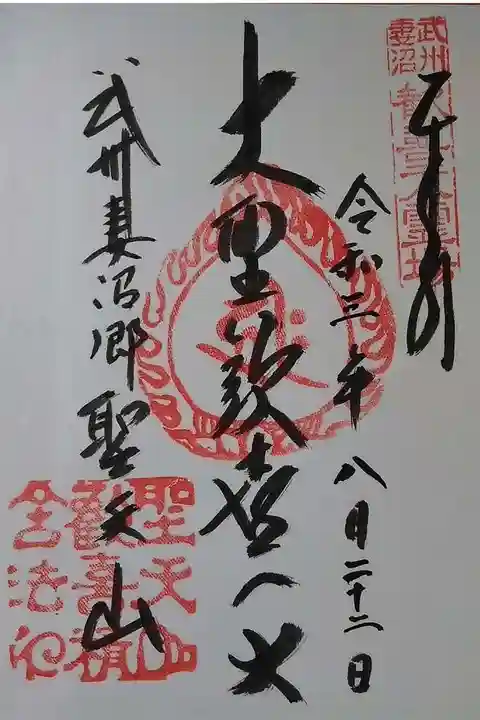 武州
妻沼
令和三年八月二十二日
大聖歓喜天
武州妻沼郷聖天山
聖天山
歡喜精
舎法印